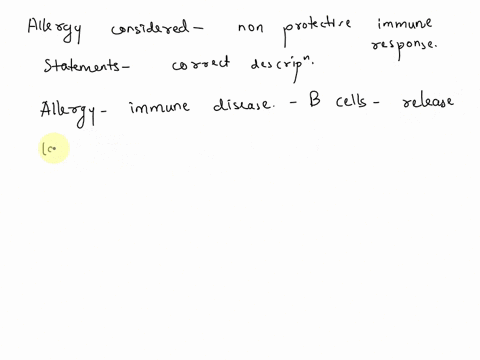 Allergy considered - non protective immune
response.
Statements - correct descripⁿ.
Allergy - immune disease. - B cells - release